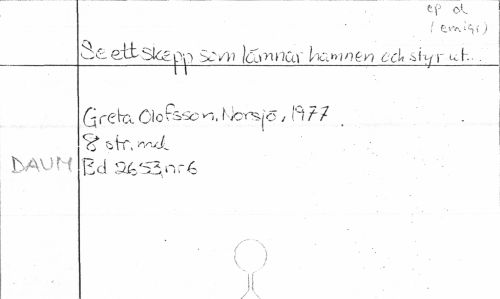 ep d
(emigr)
Se ett skepp som lämnar hamnen och styr ut...
Greta Olofsson, Norsjö, 1977
8 str, mel
DAUM Bd 2653, nr 6